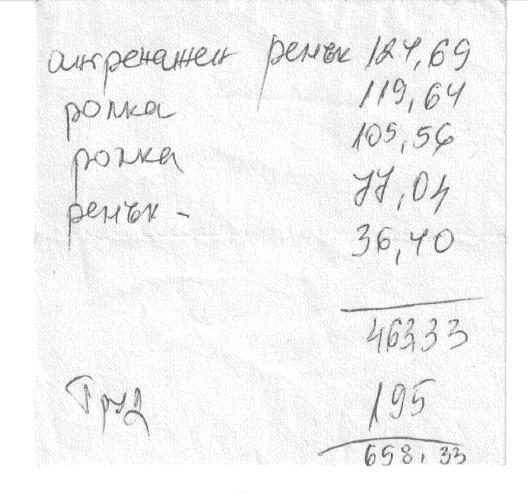 ангренажен ремък 124,69
ролка 119,64
ролка 105,56
ремък - 77,04
36,40
463,33
Труд 195
658,33